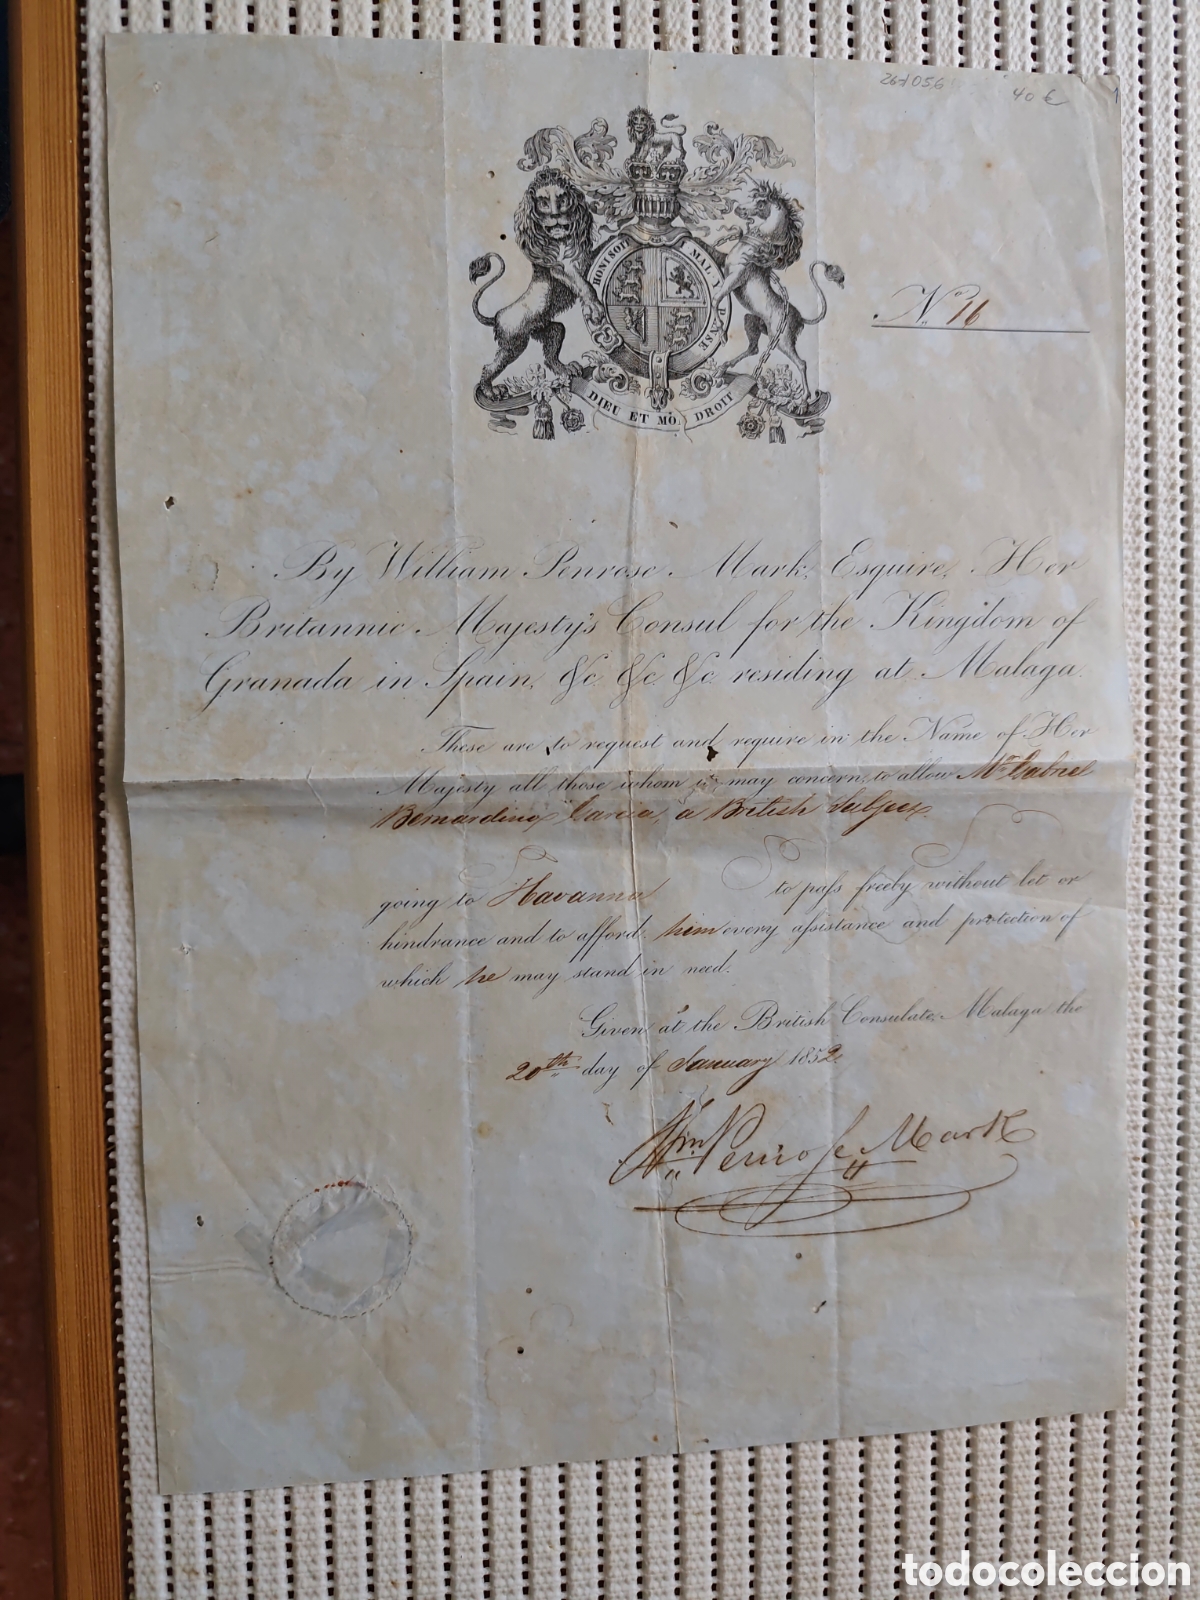 40 €
HONI SOIT
MAL Y PENSE
DIEU ET MO. DROIT
No. 16
By William Penrose Mark, Esquire, Her
Britannic Majesty's Consul for the Kingdom of
Granada in Spain, &c. &c. &c. residing at Malaga.
These are to request and require in the Name of Her
Majesty all those whom it may concern, to allow Mr. Gabriel
Bernardino Garcia, a British Subject
going to Havanna to pass freely without let or
hindrance and to afford him every assistance and protection of
which he may stand in need.
Given at the British Consulate, Malaga the
20th day of January 1852.
Wm. Penrose Mark
todocoleccion